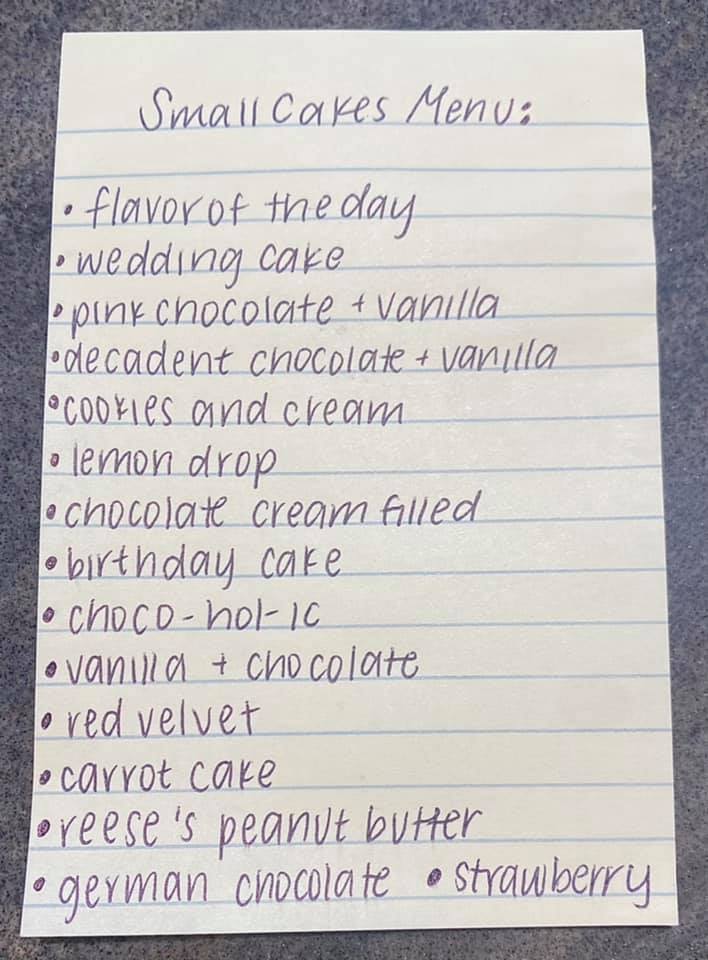 Small Cakes Menu:
• flavor of the day
• wedding cake
• pink chocolate + vanilla
• decadent chocolate + vanilla
• cookies and cream
• lemon drop
• chocolate cream filled
• birthday cake
• choco-hol-ic
• vanilla + chocolate
• red velvet
• carrot cake
• reese's peanut butter
• german chocolate • strawberry